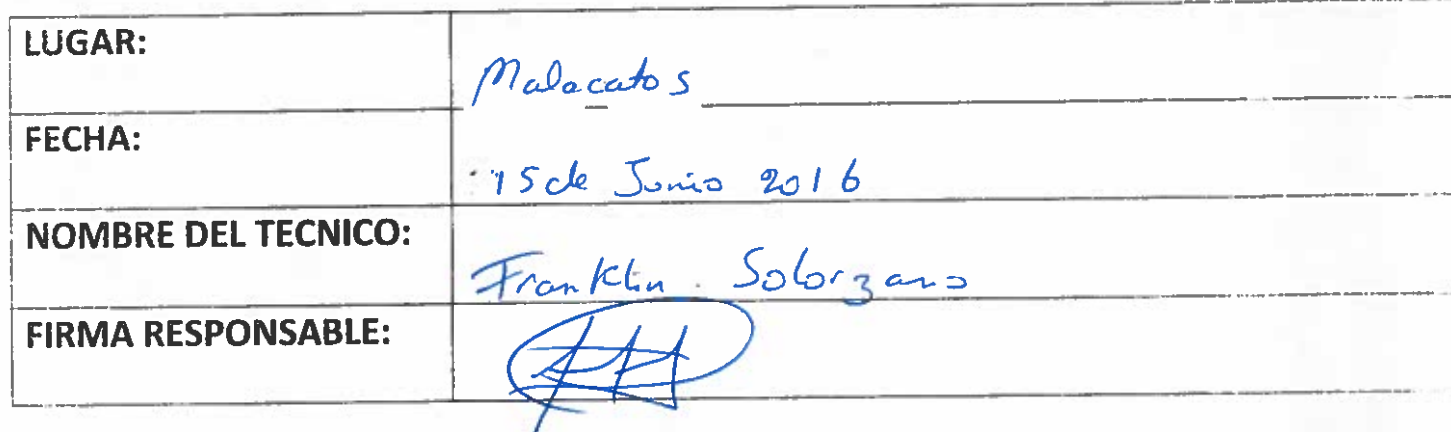 LUGAR:
Malacatos
FECHA:
15 de Junio 2016
NOMBRE DEL TECNICO:
Franklin Solorzano
FIRMA RESPONSABLE: